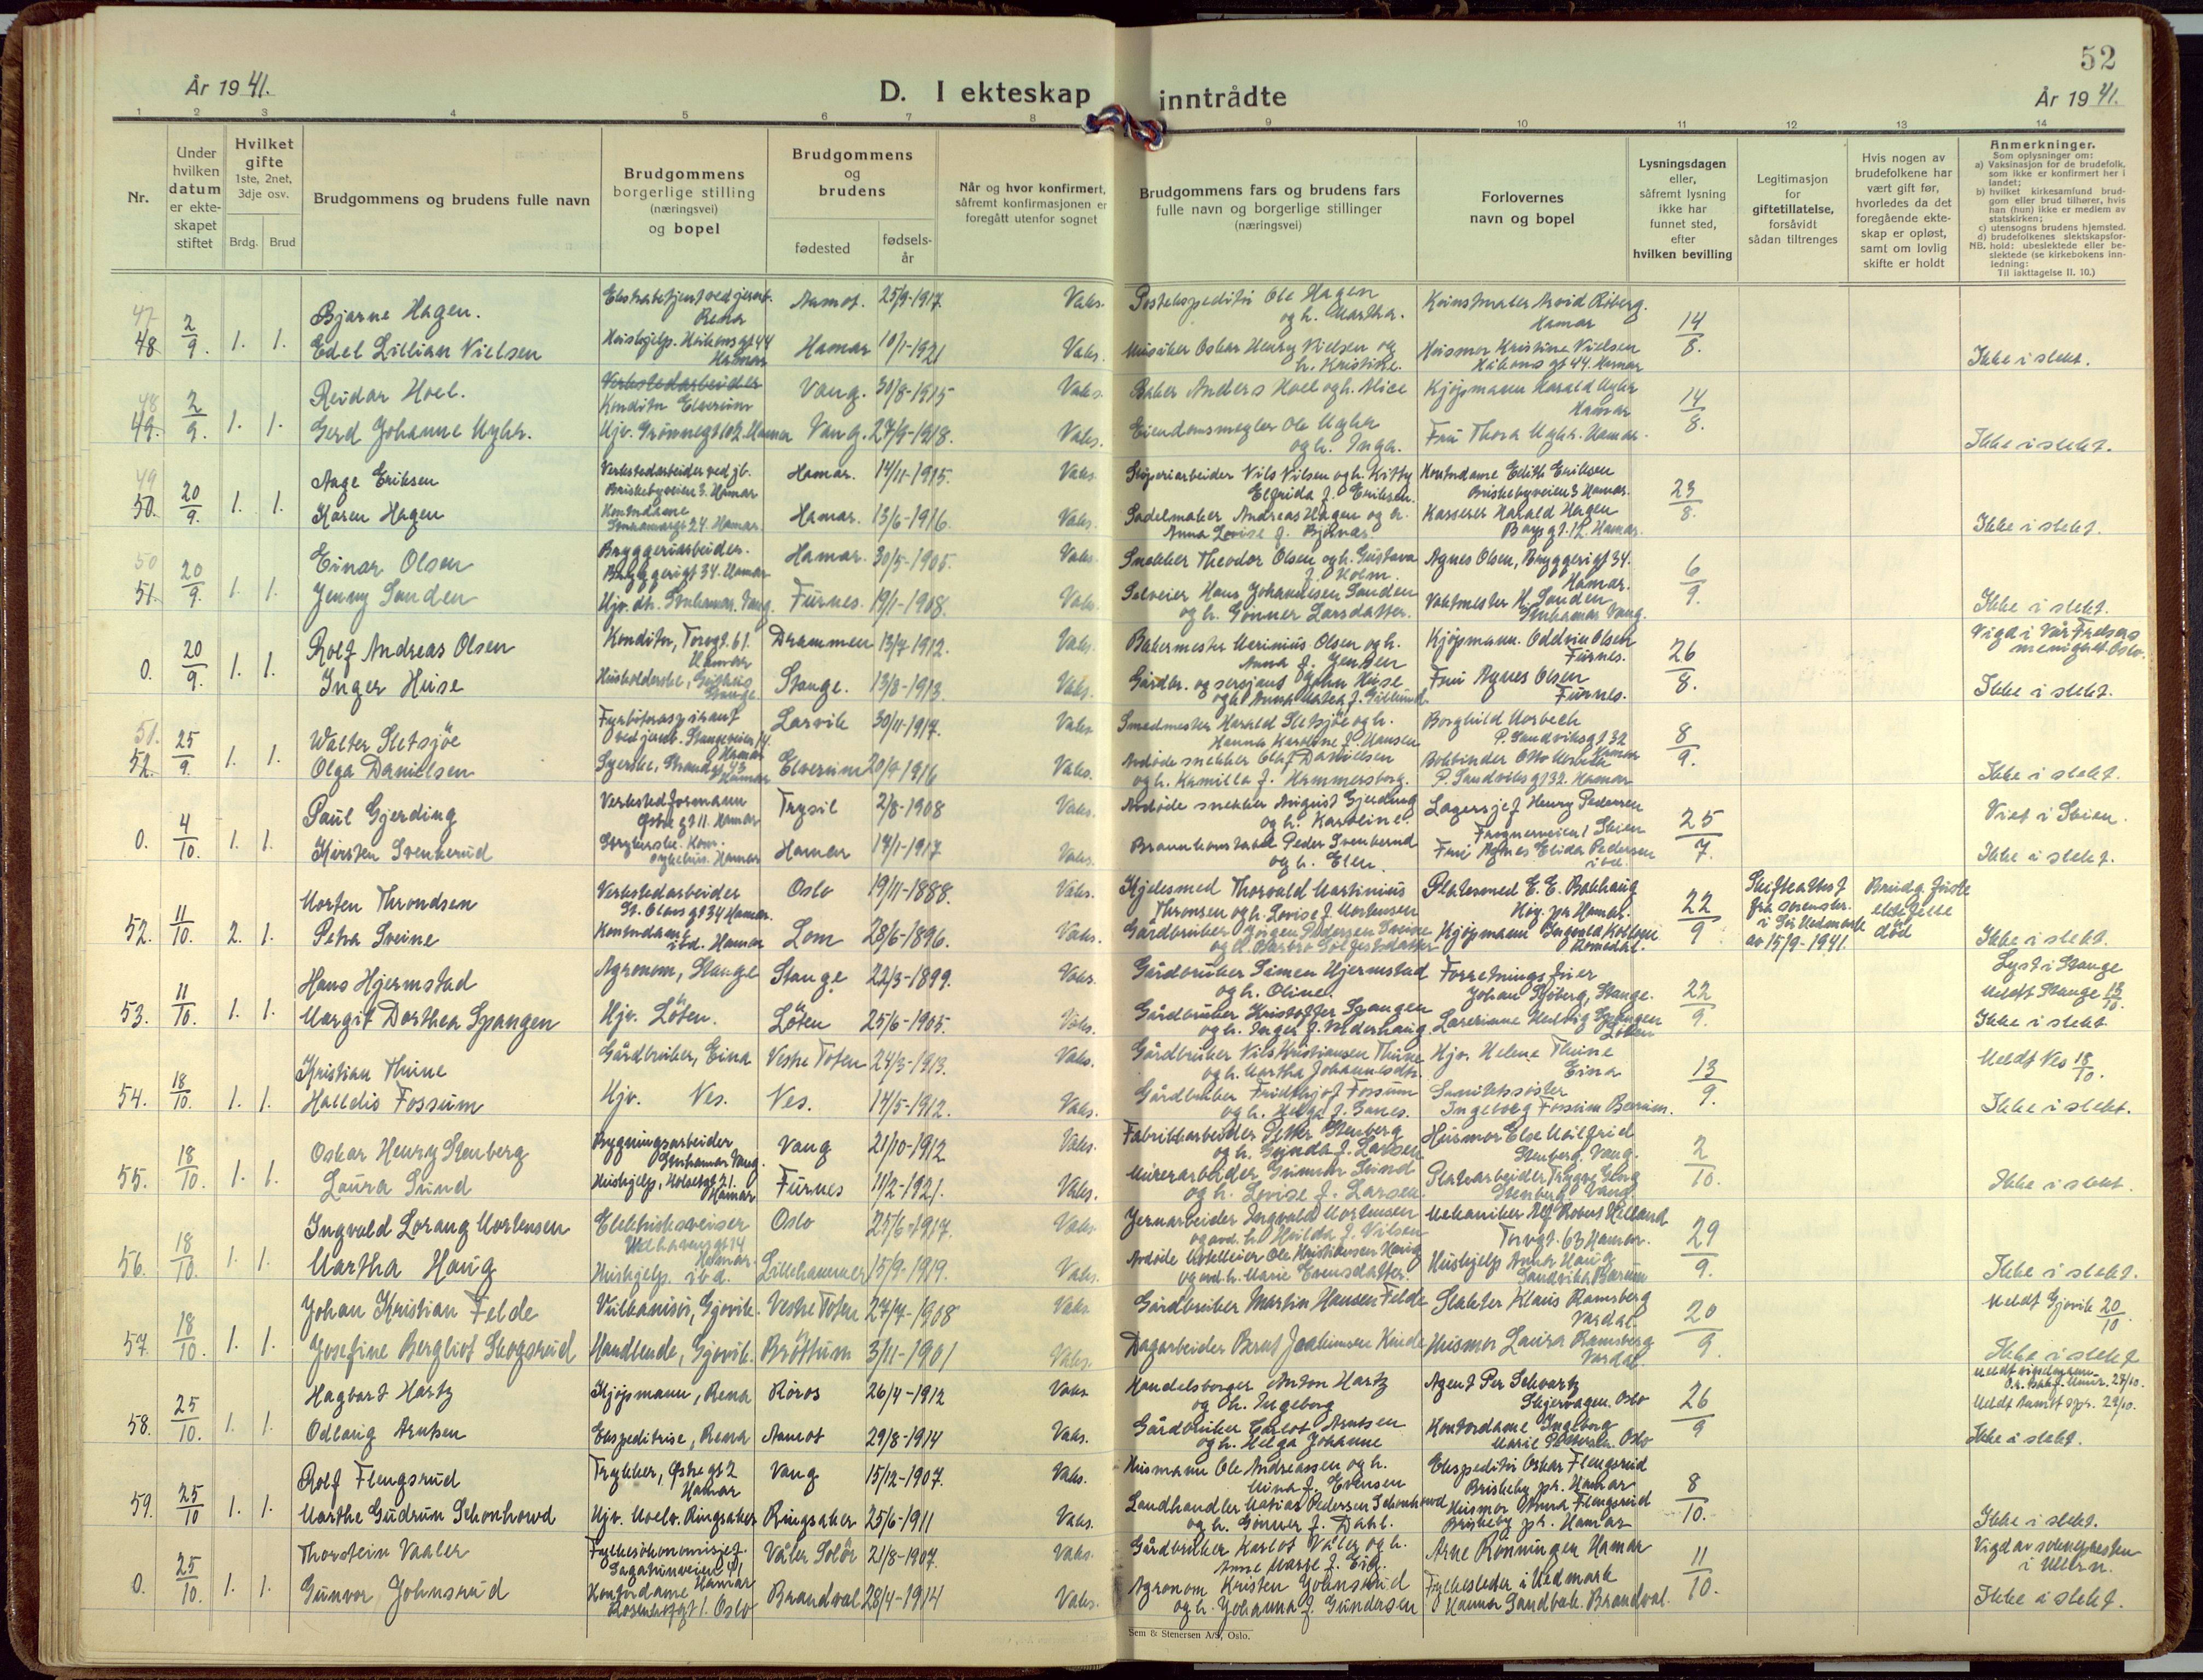 52
År 1941.
D. I ekteskap inntrådte
År 1941.
1 2 3 4 5 6 7 8 9 10 11 12 13 14
Nr.
Under hvilken datum er ekteskapet stiftet
Hvilket gifte 1ste, 2net, 3dje osv.
Brdg. Brud
Brudgommens og brudens fulle navn
Brudgommens borgerlige stilling (næringsvei) og bopel
Brudgommens og brudens
fødested
fødselsår
Når og hvor konfirmert, såfremt konfirmasjonen er foregått utenfor sognet
Brudgommens fars og brudens fars fulle navn og borgerlige stillinger (næringsvei)
Forlovernes navn og bopel
Lysningsdagen eller, såfremt lysning ikke har funnet sted, efter hvilken bevilling
Legitimasjon for giftetillatelse, forsåvidt sådan tiltrenges
Hvis nogen av brudefolkene har vært gift før, hvorledes da det foregående ekteskap er opløst, samt om lovlig skifte er holdt
Anmerkninger.
Som oplysninger om:
a) Vaksinasjon for de brudefolk, som ikke er konfirmert her i landet;
b) hvilket kirkesamfund brudgom eller brud tilhører, hvis han (hun) ikke er medlem av statskirken;
c) utensogns brudens hjemsted.
d) brudefolkenes slektskapsforhold: ubeslektede eller beslektede (se kirkebokens innledning:
NB.
Til iakttagelse II. 10.)
47
Bjarne Hagen. Rena Aamot. 25/9-1917. Vaks. Postekspeditør Ole Hagen og h. Martha. Hamar
48. 2/9. 1. 1. Edel Lillian Nielsen Hushjelp. Håkonsgt 44 Hamar Hamar 10/1-1921 Vaks. Musiker Oskar Henry Nielsen og h. Kristine. Husmor Kristine Nielsen Håkonsgt 44. Hamar 14/8. Ikke i slekt.
48
Reidar Hoel. Verkstedarbeider Konditor Elverum Vang. 30/8-1915 Vaks. Baker Anders Hoel og h. Alice Kjøpmann Harald Myhr Hamar
49. 2/9. 1. 1. Gerd Johanne Myhr. Hjv. Grønnegt 102. Hamar Vang. 27/9-1918. Vaks. Eiendomsmegler Ole Myhr og h. Inga. Fru Thora Myhr. Hamar. 14/8. Ikke i slekt.
49
Aage Eriksen Verkstedarbeider ved jb. Briskebyveien 3. Hamar Hamar. 14/11-1915. Vaks. Støperiarbeider Nils Nilsen og h. Kitty Elfrida f. Eriksen. Kontordame Edith Eriksen Briskebyveien 3 Hamar.
50. 20/9. 1. 1. Karen Hagen Kontordame Hamar. 13/6-1916. Vaks. Sadelmaker Andreas Hagen og h. Anna Lovise f. Bjørnar. Kasserer Harald Hagen Hamar. 23/8. Ikke i slekt.
50
Einar Olsen Bryggeriarbeider. Bryggerigt 34. Hamar Hamar. 30/5-1905. Vaks. Snekker Theodor Olsen og h. Gustava f. Holm. Agnes Olsen, Bryggerigt 34. Hamar.
51. 20/9. 1. 1. Jenny Sanden Hjv. dtr. Storhamar. Vang. Furnes. 19/1-1908. Vaks. Selveier Hans Johannesen Sanden og h. Gunner Larsdatter. Vaktmester H. Sanden Storhamar Vang. 6/9. Ikke i slekt.
Rolf Andreas Olsen Konditor, Torvgt. 61. Hamar Drammen 13/7-1912. Vaks. Bakermester Marinius Olsen og h. Anna f. Jensen Kjøpmann Oddvin Olsen Furnes. Vigd i Vår Frelsers menighet Oslo.
0. 20/9. 1. 1. Inger Huse Stange. Stange. 13/8-1913. Vaks. Gårdbr. og sersjant John Huse Fru Agnes Olsen Furnes. 26/8. Ikke i slekt.
51.
Walter Sletsjøe Fyrbøteraspirant ved jernb. Stangeveien 14. Hamar Larvik 30/11-1917. Vaks Smedmester Harald Sletsjøe og h. Hanna Karoline f. Hansen Borghild Morbech P. Sandviksgt 32 Hamar
52. 25/9. 1. 1. Olga Danielsen Syerske, Strandgt 43 Hamar Elverum 20/9-1916 Vaks. Avdøde snekker Olaf Danielsen og h. Kamilla f. Hammersborg. Bokbinder Otto Morbech P. Sandviksgt 32. Hamar 8/9. Ikke i slekt.
Paul Gjerding Verkstedformann Østregt 11. Hamar Trysil 2/8-1908 Vaks. Avdøde snekker August Gjerding og h. Karoline. Lagersjef Henry Pedersen Skien Viet i Skien.
0. 4/10. 1. 1. Kirsten Svenkerud Hamar Hamar 14/1-1917 Vaks. Brannkonstabel Peder Svenkerud og h. Elen. Fru Agnes Elida Pedersen ibd. 25/7. Ikke i slekt.
Morten Throndsen Verkstedarbeider St. Olavsgt 34 Hamar. Oslo 19/11-1888. Vaks. Kjelesmed Thorvald Martinius Thronsen og h. Lovise f. Mortensen Platesmed E. E. Bakhaug pr Hamar. Skifteattest fra sorenskr. i Sør Hedmark av 15/9-1941. Brudg. første ektefelle død
52. 11/10. 2. 1. Petra Sveine Kontordame ibd. Hamar Lom 28/6-1896. Vaks. Gårdbruker Jørgen Pedersen Sveine Kjøpmann Romedal. 22/9 Ikke i slekt.
Hans Hjermstad Agronom, Stange Stange 22/3-1899. Vaks. Gårdbruker Simen Hjermstad og h. Oline. Forretningsfører Johan Sjøberg, Stange. Lyst i Stange
53. 11/10. 1. 1. Margit Dorthea Spangen Hjv. Løten. Løten 25/6-1905. Vaks. Gårdbruker Kristoffer Spangen og h. Inger f. Lærerinne Hedvig Spangen Løten 22/9. Meldt Stange 13/10. Ikke i slekt
Kristian Thune Gårdbruker, Eina Vestre Toten 24/3-1913. Vaks. Gårdbruker Nils Kristiansen Thune og h. Martha Johannesdtr. Hjv. Helene Thune Eina Meldt Nes 18/10.
54. 18/10. 1. 1. Halldis Fossum Hjv. Nes. Nes. 14/5-1912. Vaks. Gårdbruker Fridthjof Fossum og h. Helga f. Sanes. Ingeborg Fossum Bærum. 13/9. Ikke i slekt.
Oskar Henry Stenberg Bygningsarbeider Storhamar Vang. Vang 21/10-1912 Vaks. Fabrikkarbeider Petter Stenberg og h. Gunda f. Larsen Husmor Else Målfrid Stenberg. Vang.
55. 18/10. 1. 1. Laura Lund Hushjelp, Holsetgt 21. Hamar Furnes 11/2-1921. Vaks. Murerarbeider Gunnar Lund og h. Lovise f. Larsen. Stenberg. Vang 2/10. Ikke i slekt.
Ingvald Lorang Mortensen Elektrisksveiser Hamar. Oslo 25/6-1917. Vaks Jernarbeider Ingvald Mortensen og avd. h. Hulda f. Nilsen Mekaniker Alf Robert Helland Torvgt. 63 Hamar.
56. 18/10. 1. 1. Martha Haug Hushjelp. ibd. Lillehammer 15/9-1919. Vaks. Avdøde Ole Kristiansen Haug og avd. h. Marie Evensdatter. Hushjelp Anna Haug Sandvika Bærum 29/9. Ikke i slekt.
Johan Kristian Felde Vulkanisør, Gjøvik. Vestre Toten 27/7-1908 Vaks Gårdbruker Martin Hansen Felde Slakter Klaus Ramsberg Vardal. Meldt Gjøvik 20/10.
57. 18/10. 1. 1. Josefine Bergliot Skogsrud Handlende, Gjøvik. Brøttum 3/11-1901 Vaks. Dagarbeider Bernt Joakimsen Kinde Husmor Laura Ramsberg Vardal. 20/9 Ikke i slekt
Hagbart Hartz Kjøpmann, Rena Røros 26/4-1912 Vaks Handelsborger Anton Hartz og h. Ingeborg Agent Per Schvartz Oslo
58. 25/10. 1. 1. Odlaug Arntsen Ekspeditrise, Rena Aamot 29/8-1914 Vaks. Gårdbruker Carlot Arntsen og h. Helga Johanne Kontordame Ingeborg Marie Pettersen. Oslo 26/9 Meldt Aamot spr. 29/10. Ikke i slekt.
Rolf Flengsrud Trykker, Østregt 2 Hamar Vang 15/12-1907. Vaks. Husmann Ole Andreassen og h. Mina f. Evensen Ekspeditør Oskar Flengsrud Briskeby pr. Hamar
59. 25/10 1. 1. Marthe Gudrun Schonhowd Hjv. Moelv. Ringsaker Ringsaker 25/6-1911 Vaks. Landhandler Matias Pedersen Schonhowd og h. Gunner f. Dahl. Husmor Anna Flengsrud Briskeby pr. Hamar 8/10. Ikke i slekt.
Thorstein Vaaler Fylkesøkonomisjef. Hamar Våler Solør 21/8-1907. Vaks. Gårdbruker Karlot Våler og h. Anne Marie f. Eig. Arne Rønningen Hamar Fylkesleder i Hedmark Vigd av soknepresten i Ullern.
0. 25/10. 1. 1. Gunvor Johnsrud Kontordame Rosenhofgt 1. Oslo Brandval 28/4-1914 Vaks. Agronom Kristen Johnsrud og h. Johanna f. Gundersen Hanna Sandbak. Brandval. 11/10. Ikke i slekt.
Sem & Stenersen A/S, Oslo.